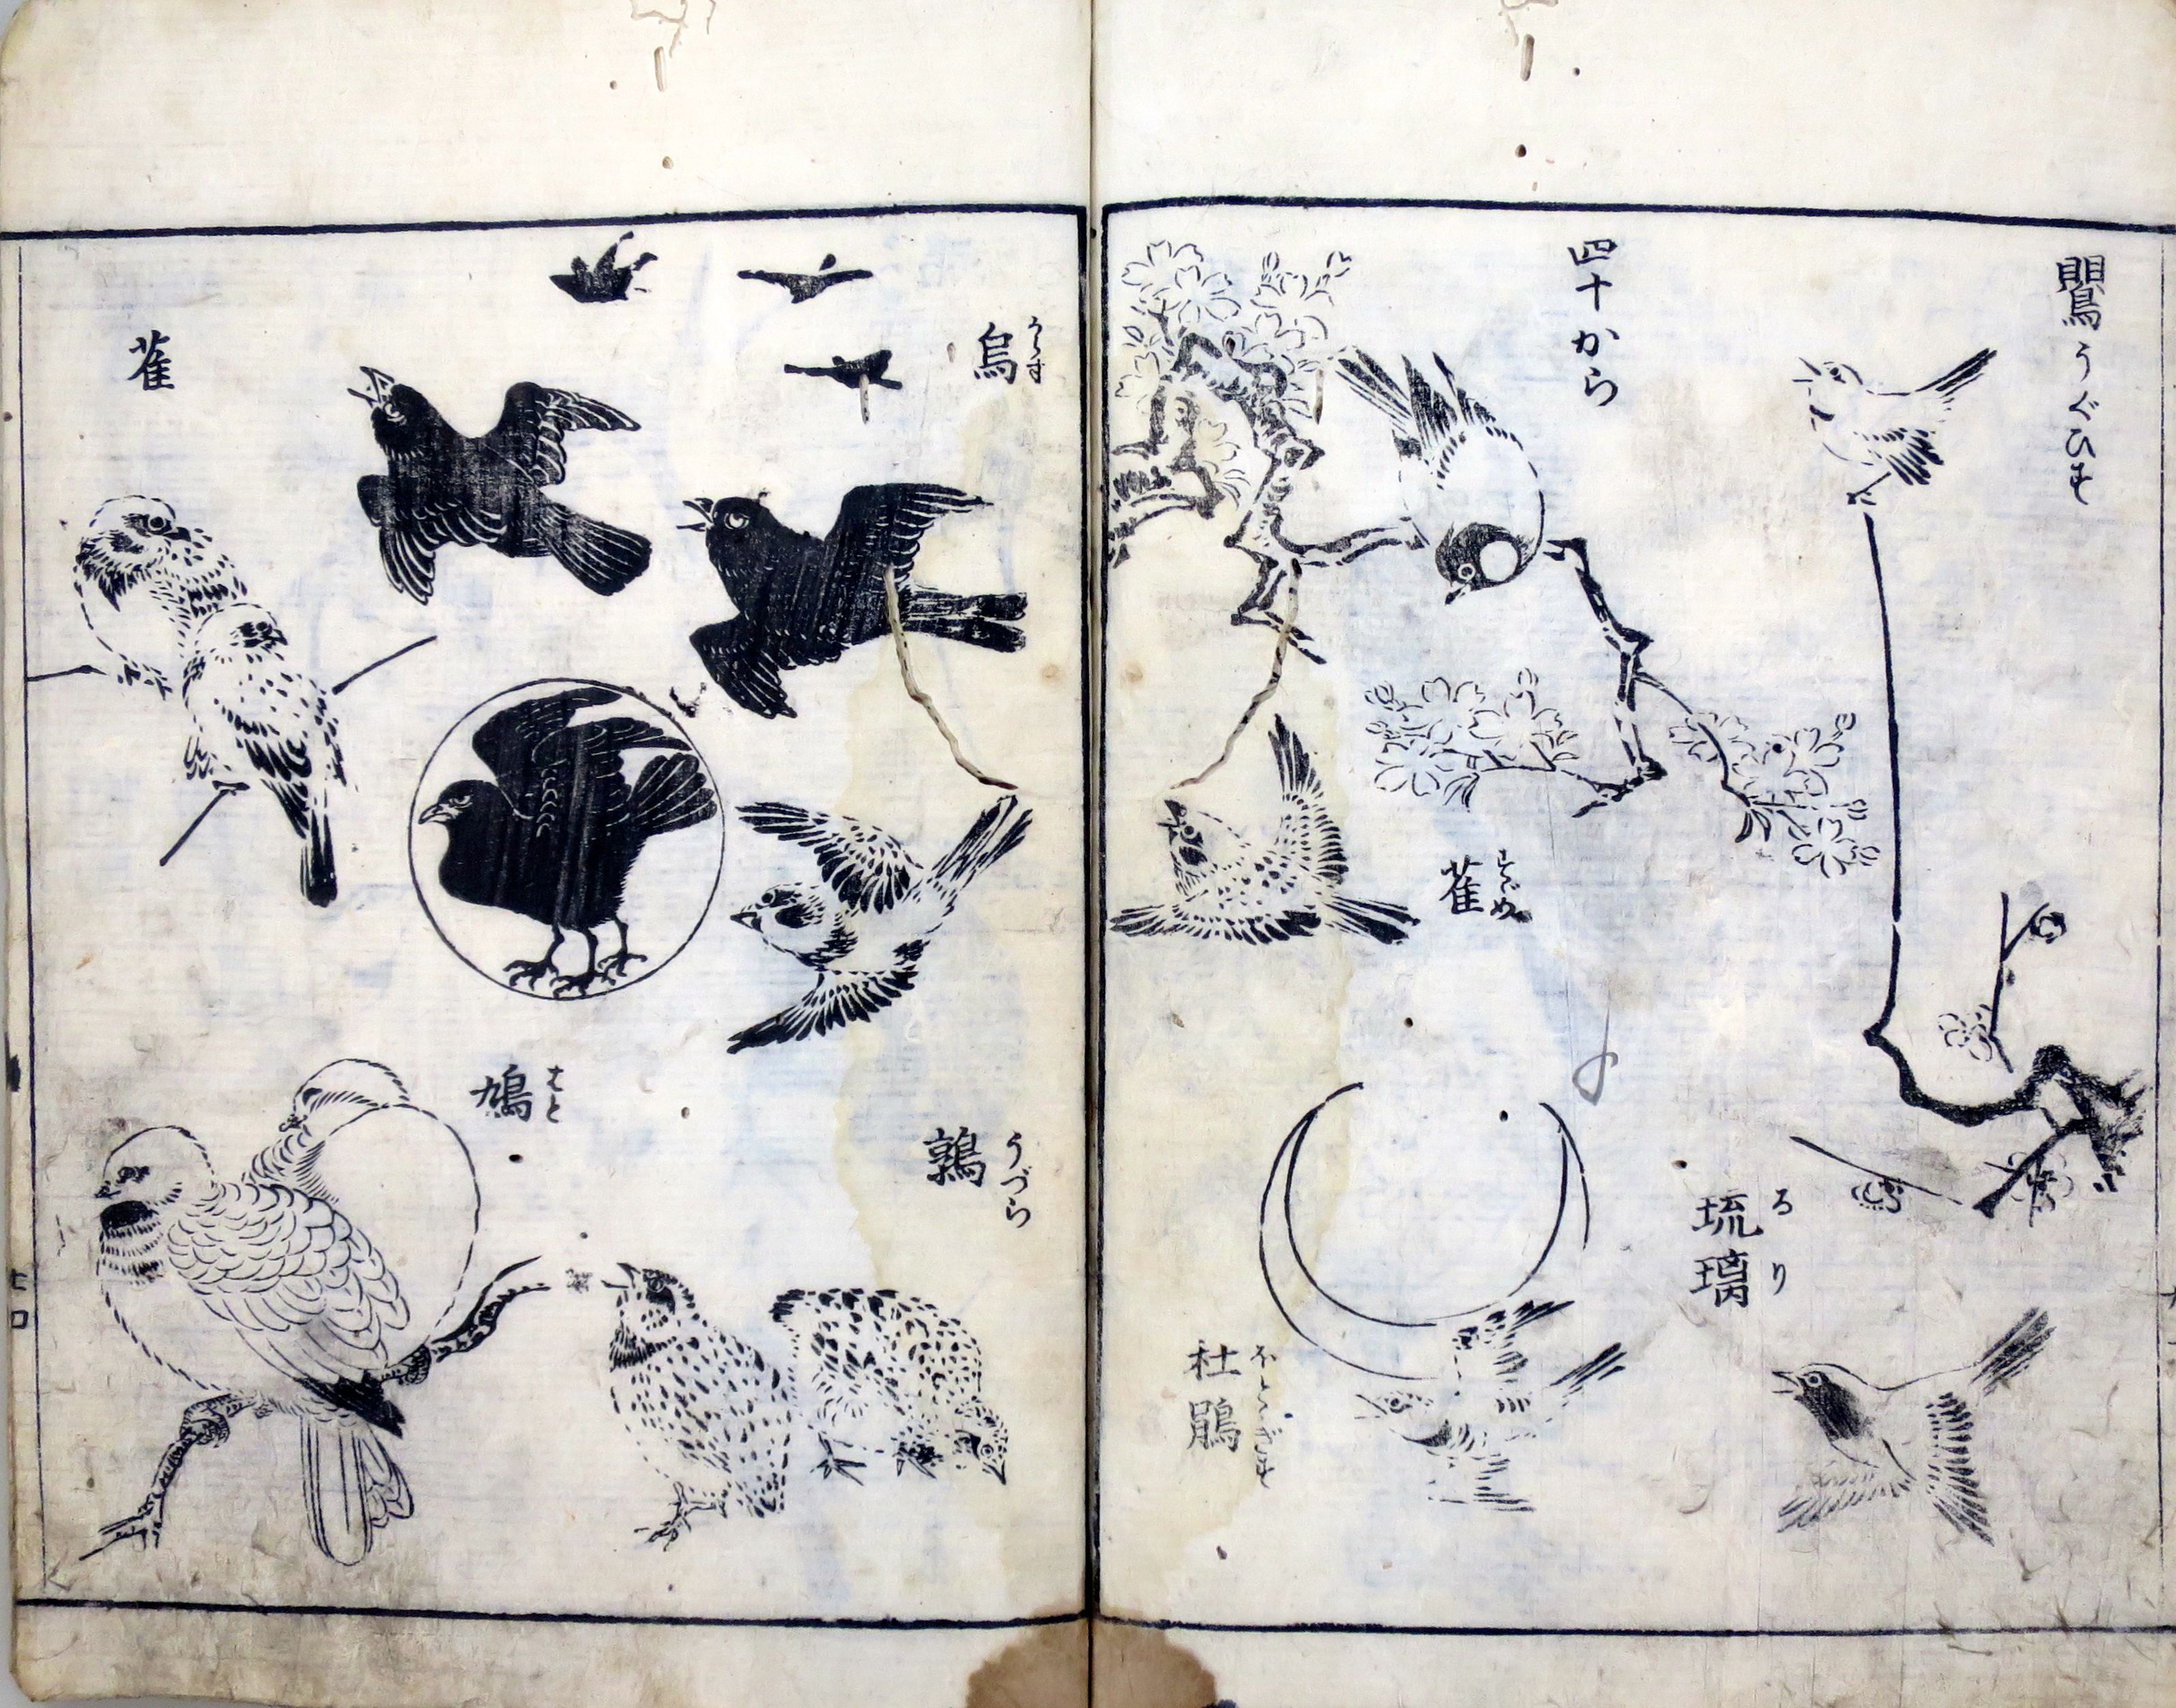 鸎うぐひす
四十から
雀
すゞめ
琉璃
るり
杜鵑
ほとゝぎす
烏
からす
雀
鳩
はと
鶉
うづら